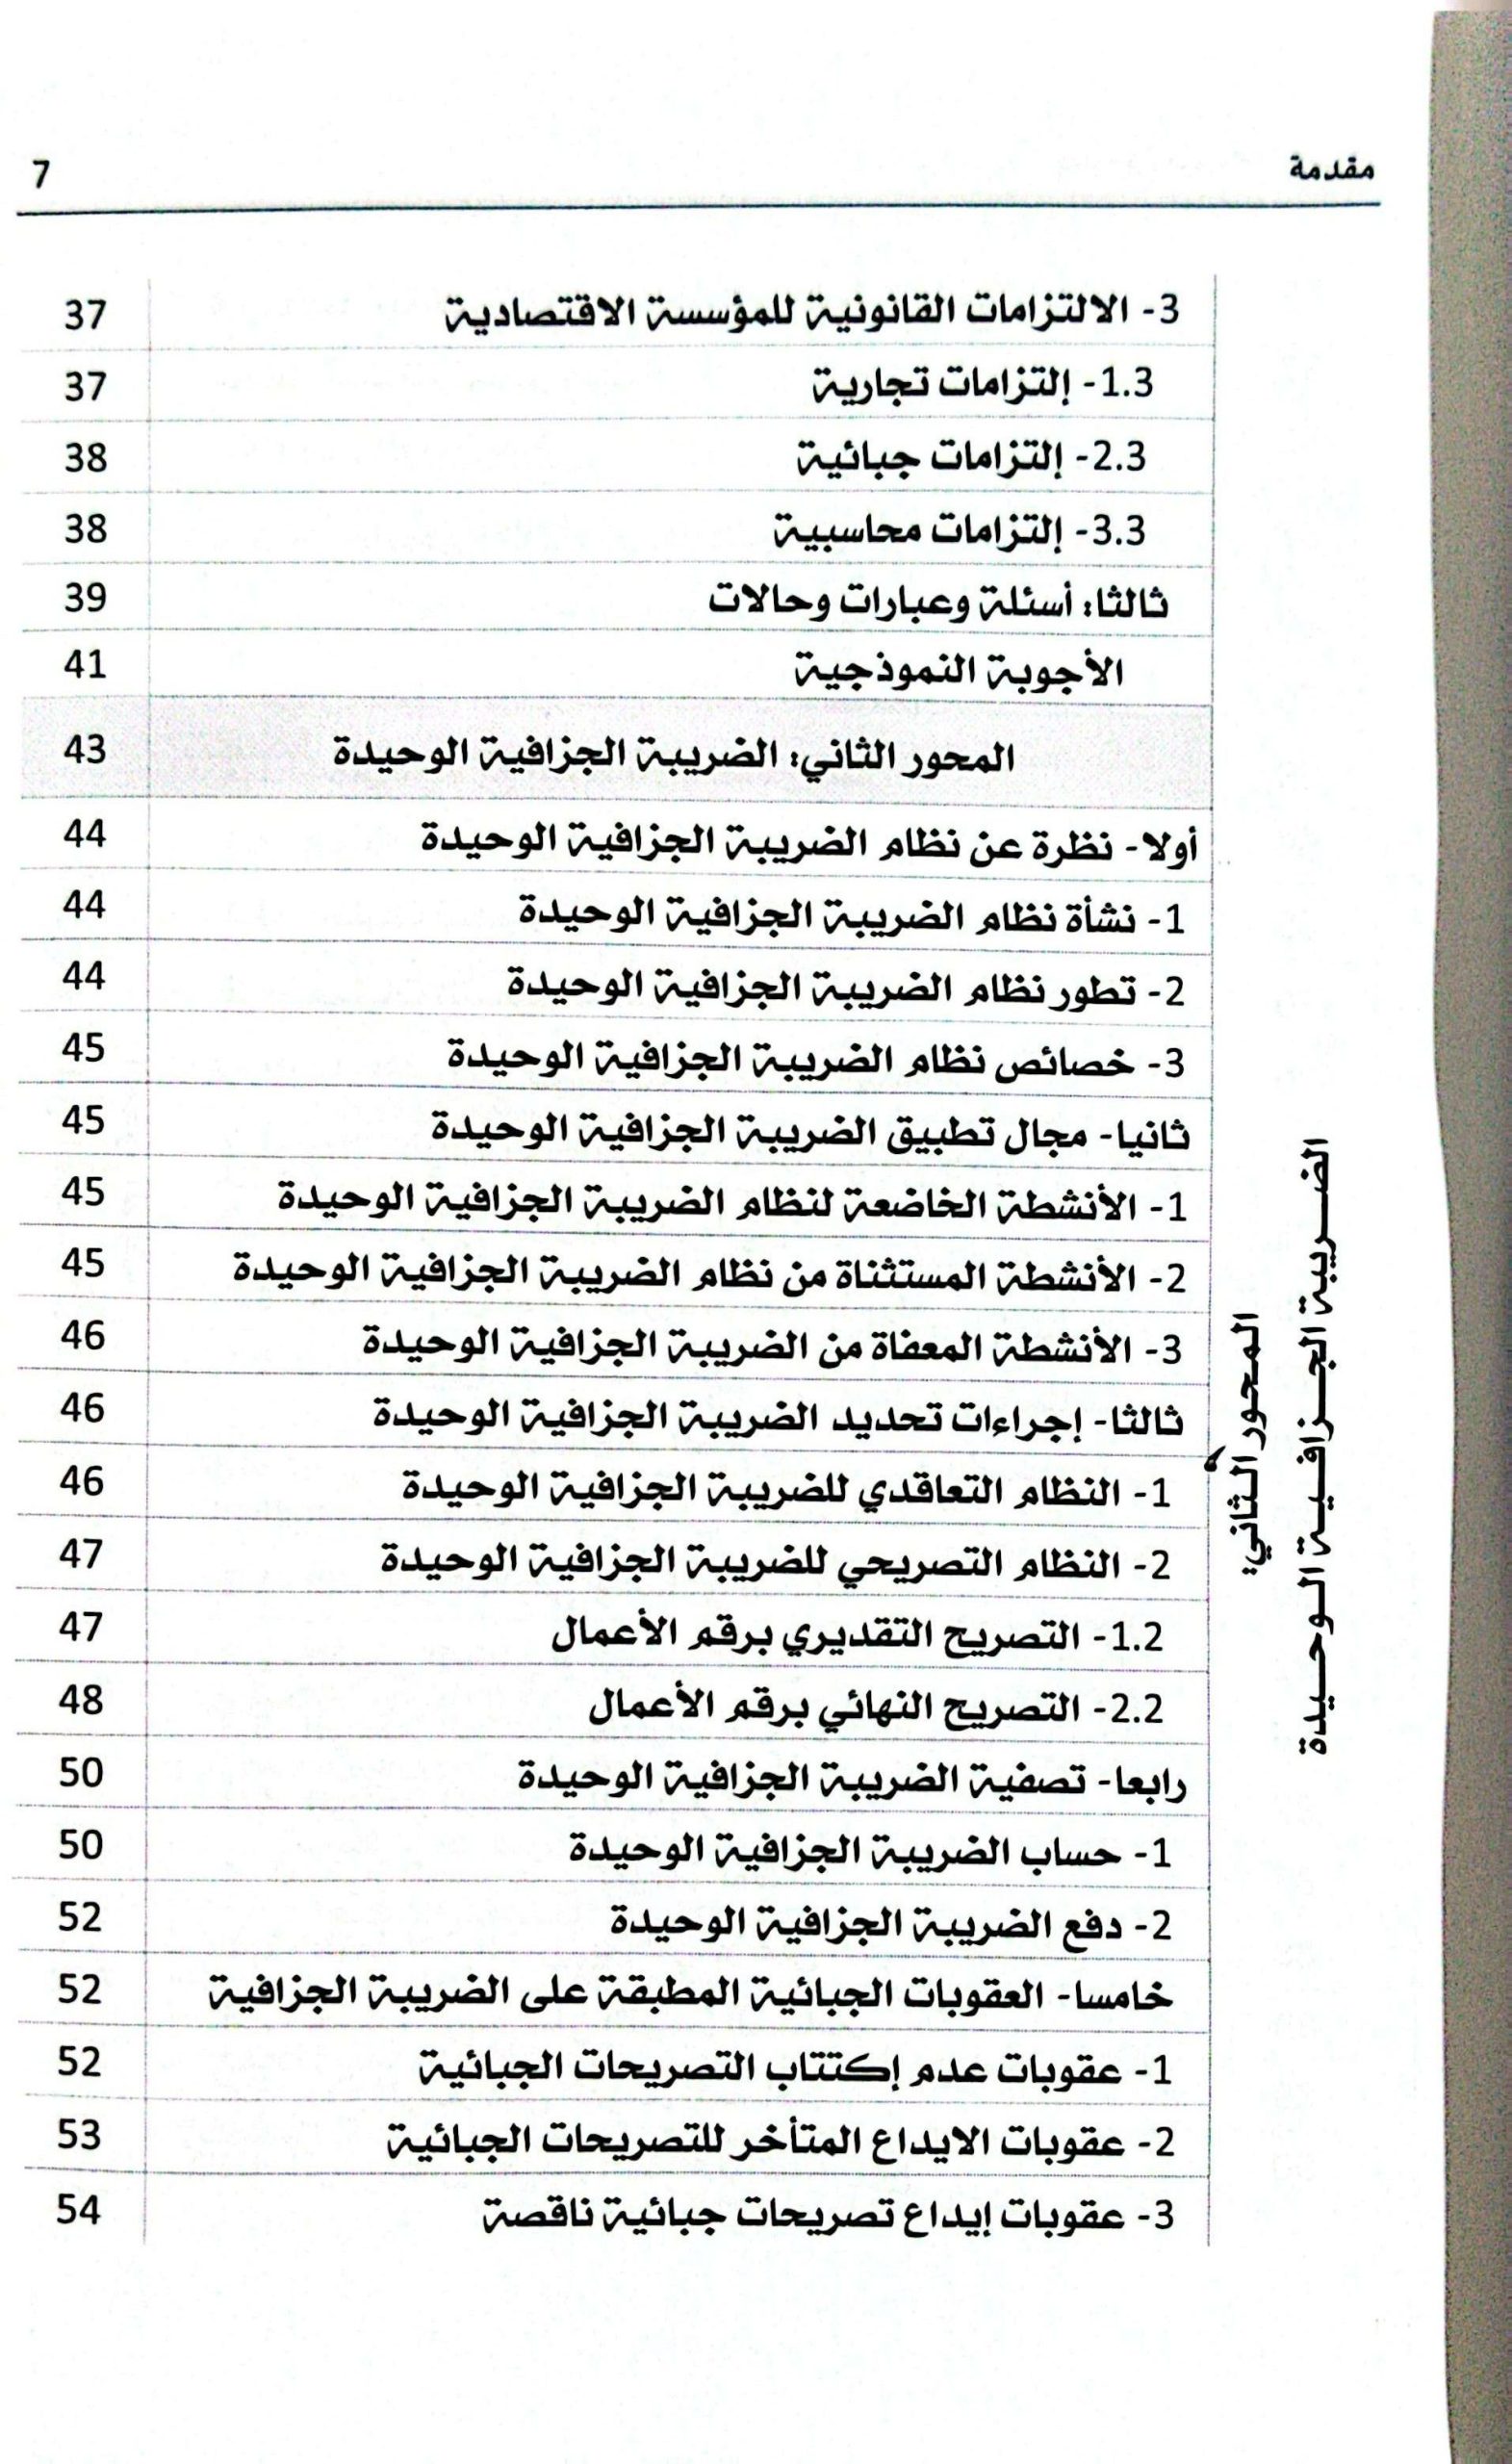 مقدمة 7
3- الالتزامات القانونية للمؤسسة الاقتصادية 37
1.3- إلتزامات تجارية 37
2.3- إلتزامات جبائية 38
3.3- إلتزامات محاسبية 38
ثالثا: أسئلة وعبارات وحالات 39
الأجوبة النموذجية 41
المحور الثاني: الضريبة الجزافية الوحيدة 43
أولا- نظرة عن نظام الضريبة الجزافية الوحيدة 44
1- نشأة نظام الضريبة الجزافية الوحيدة 44
2- تطور نظام الضريبة الجزافية الوحيدة 44
3- خصائص نظام الضريبة الجزافية الوحيدة 45
ثانيا- مجال تطبيق الضريبة الجزافية الوحيدة 45
1- الأنشطة الخاضعة لنظام الضريبة الجزافية الوحيدة 45
2- الأنشطة المستثناة من نظام الضريبة الجزافية الوحيدة 45
3- الأنشطة المعفاة من الضريبة الجزافية الوحيدة 46
ثالثا- إجراءات تحديد الضريبة الجزافية الوحيدة 46
1- النظام التعاقدي للضريبة الجزافية الوحيدة 46
2- النظام التصريحي للضريبة الجزافية الوحيدة 47
1.2- التصريح التقديري برقم الأعمال 47
2.2- التصريح النهائي برقم الأعمال 48
رابعا- تصفية الضريبة الجزافية الوحيدة 50
1- حساب الضريبة الجزافية الوحيدة 50
2- دفع الضريبة الجزافية الوحيدة 52
خامسا- العقوبات الجبائية المطبقة على الضريبة الجزافية 52
1- عقوبات عدم إكتتاب التصريحات الجبائية 52
2- عقوبات الايداع المتأخر للتصريحات الجبائية 53
3- عقوبات إيداع تصريحات جبائية ناقصة 54
المحور الثاني:
الضريبة الجزافية الوحيدة